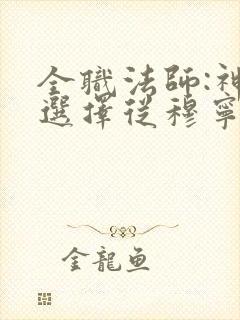 全職法師:神
選擇從穆寧
金龍魚